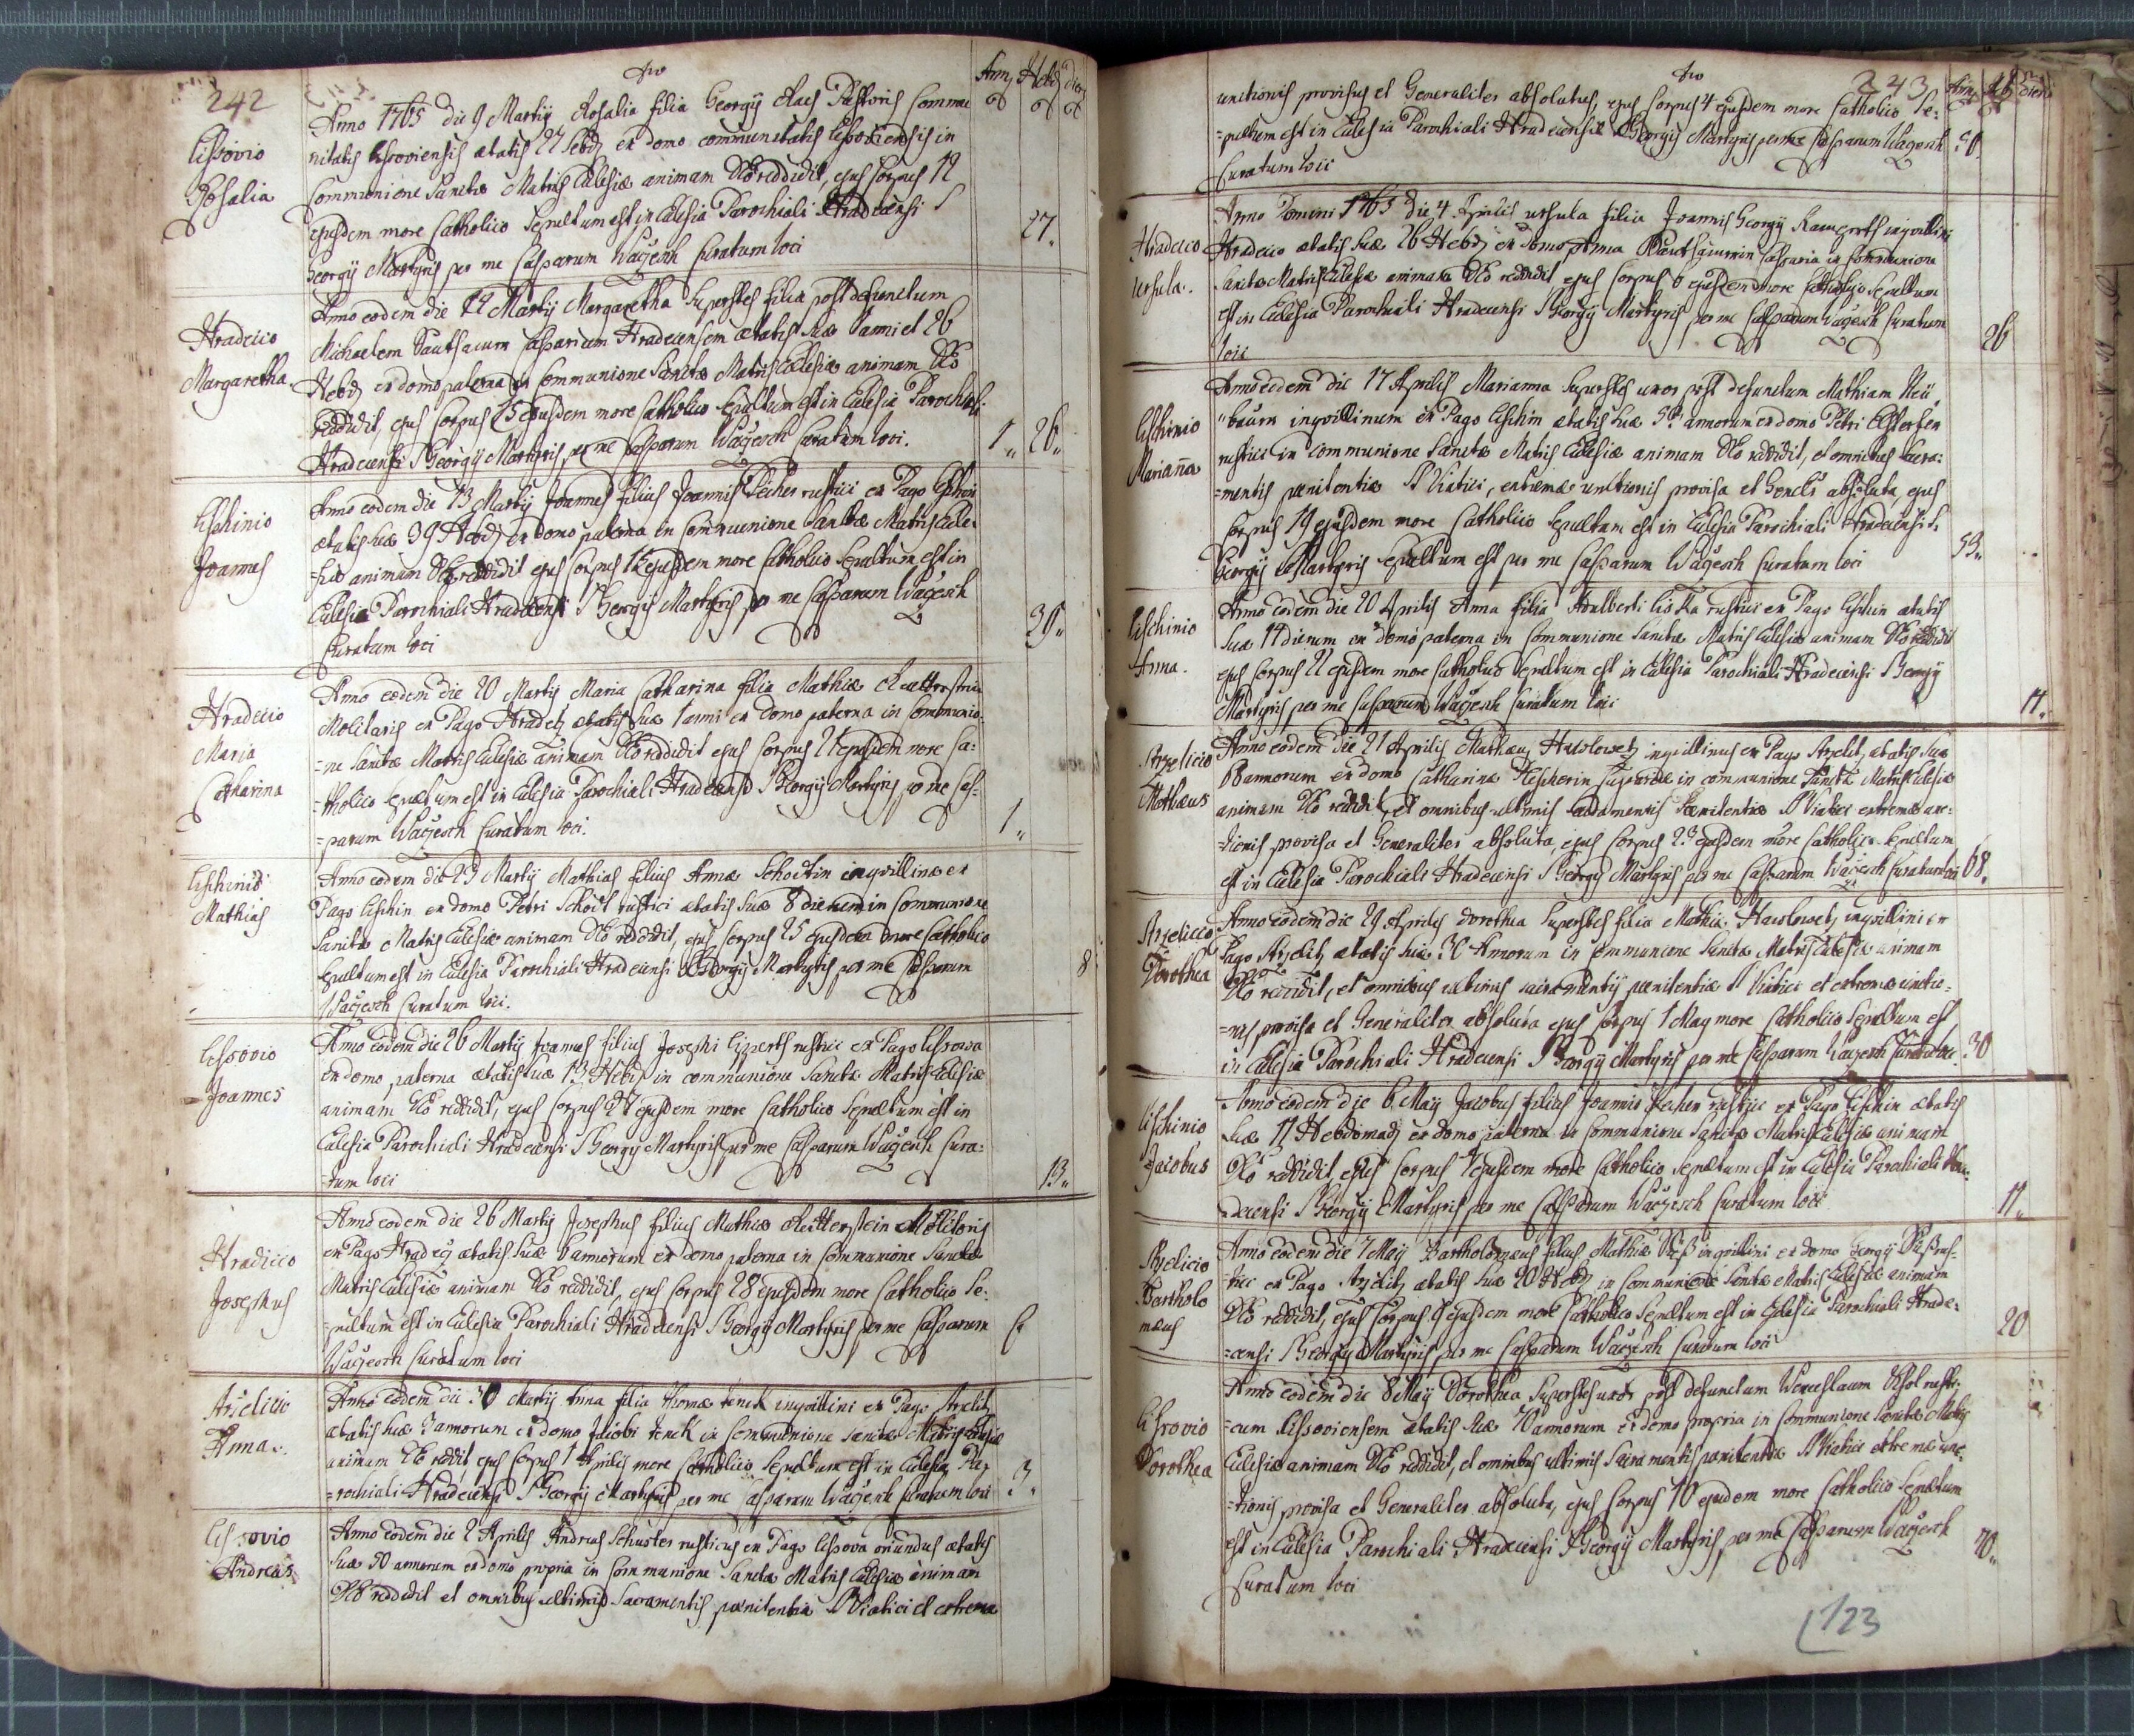 242
Anno 1765 die 9 Martij Rosalia filia Georgij Pastoris Commu
nitatis Lissoviensis ætatis 27 Hebd ex domo communitatis Lissoviensis in
Lissovio
Rosalia
Communione Sanctæ Matris Ecclesiæ animam Deo reddidit, ejus Corpus 12
ejusdem more Catholico Sepultum est in Ecclesia Parochiali Hradecensi S
Georgij Martyris per me Casparum Wagesch Curatum loci
27.
Anno eodem die 14 Martij Margaretha Superstes filia post defunctum
Hradecio
Margaretha.
Michaelem Casparium Hradecensem ætatis suæ 1 anni et 26
Hebd ex domo paterna in Communione Sanctæ Matris Ecclesiæ animam Deo
reddidit, ejus Corpus 15 ejusdem more Catholico Sepultum est in Ecclesia Parochiali
Hradecensi S Georgij Martyris per me Casparum Wagesch Curatum loci.
1„ 26„
Anno eodem die 13 Martij Joannes filius Joannis Pecher rustici ex Pago Lischin
Lischinio
Joannes
ætatis suæ 39 Hebd ex domo paterna in Communione Sanctæ Matris Eccle
=siæ animam Deo reddidit ejus Corpus 15 ejusdem more Catholico Sepultum est in
Ecclesia Parochiali Hradecensi S Georgij Martyris per me Casparum Wagesch
Curatum loci
39„
Anno eodem die 20 Martij Maria Catharina filia Mathiæ
Hradecio
Maria
Catharina
Molitoris ex Pago Hradetz ætatis suæ 1 anni ex domo paterna in Communio
=ne Sanctæ Matris Ecclesiæ animam Deo reddidit ejus Corpus 21 ejusdem more Ca=
=tholico Sepultum est in Ecclesia Parochiali Hradecensi S Georgij Martyris per me Cas=
=parum Wagesch Curatum loci.
1„
Anno eodem die 23 Martij Mathias filius Annæ Schoctin inquilinæ ex
Lischinio
Mathias
Pago Lischin ex domo Petri Schoct rustici ætatis suæ 8 dierum in Communione
Sanctæ Matris Ecclesiæ animam Deo reddidit, ejus Corpus 25 ejusdem more Catholico
Sepultum est in Ecclesia Parochiali Hradecensi S Georgij Martyris per me Casparum
Wagesch Curatum loci.
8
Anno eodem die 26 Martij Joannes filius Josephi rustici ex Pago Lissowa
Lissovio
Joannes
ex domo paterna ætatis suæ 13 Hebd in communione Sanctæ Matris Ecclesiæ
animam Deo reddidit, ejus Corpus 27 ejusdem more Catholico Sepultum est in
Ecclesia Parochiali Hradecensi S Georgij Martyris per me Casparum Wagesch Cura=
=tum loci
13„
Anno eodem die 26 Martij Josephus filius Mathiæ Reitterstein Molitoris
Hradecio
Josephus
ex Pago Hradecz ætatis suæ 6 annorum ex domo paterna in Communione Sanctæ
Matris Ecclesiæ animam Deo reddidit, ejus Corpus 28 ejusdem more Catholico Se=
=pultum est in Ecclesia Parochiali Hradecensi S Georgij Martyris per me Casparum
Wagesch Curatum loci
6
Anno eodem die 30 Martij Anna filia Thomæ Jenck inquillini ex Pago
Anna.
ætatis suæ 3 annorum ex domo Jacobi Jenck in Communione Sanctæ Matris Ecclesiæ
animam Deo reddit ejus Corpus 1 Aprilis more Catholico Sepultum est in Ecclesia Pa=
=rochiali Hradecensi S Georgij Martyris per me Casparum Wagesch Curatum loci
3„
Lissovio
Andreas
Anno eodem die 2 Aprilis Andreas Schuster rusticus ex Pago Lissova oriundus ætatis
suæ 50 annorum ex domo propria in Communione Sanctæ Matris Ecclesiæ animam
Deo reddidit et omnibus ultimis Sacramentis pœnitentiæ S Viatici et extremæ
243
unctionis provisus et Generaliter absolutus, ejus Corpus 4 ejusdem more Catholico Se=
=pultum est in Ecclesia Parochiali Hradecensi S Georgij Martyris per me Casparum Wagesch
Curatum loci
50.
Anno Domini 1765 die 4 Aprilis Ursula filia Joannis Georgij inquillini
Hradecio
Ursula.
Hradecio ætatis suæ 26 Hebd ex domo in Communione
Sanctæ Matris Ecclesiæ animam Deo reddidit ejus Corpus 6 ejusdem more Catholico Sepultum
est in Ecclesia Parochiali Hradecensi S Georgij Martyris per me Casparum Wagesch Curatum
loci
26
Anno eodem die 17 Aprilis Marianna Superstes uxor post defunctum Mathiam Neü
Lischinio
Marianna
„baum inquillinum ex Pago Lischin ætatis suæ 53 annorum ex domo Petri
rustici in Communione Sanctæ Matris Ecclesiæ animam Deo reddidit, et omnibus Sacra=
=mentis pœnitentiæ S Viatici, extremæ unctionis provisa et absoluta, ejus
Corpus 19 ejusdem more Catholico Sepultum est in Ecclesia Parochiali Hradecensi S.
Georgij Martyris sepultum est per me Casparum Wagesch Curatum loci
53„
Anno eodem die 20 Aprilis Anna filia Adalberti Liska rustici ex Pago Lischin ætatis
Lischinio
Anna.
suæ 14 dierum ex domo paterna in Communione Sanctæ Matris Ecclesiæ animam Deo reddidit
ejus Corpus 21 ejusdem more Catholico Sepultum est in Ecclesia Parochiali Hradecensi S Georgij
Martyris per me Casparum Wagesch Curatum loci
14.
Anno eodem die 21 Aprilis Mathæus Hawlowetz inquillinus ex Pago ætatis suæ
Mathæus
68 annorum ex domo Catharinæ in communione Sanctæ Matris Ecclesiæ
animam Deo reddidit, et omnibus ultimis Sacramentis Pœnitentiæ S Viatici extremæ unc=
=tionis provisa et Generaliter absoluta, ejus Corpus 23 ejusdem more Catholico Sepultum
est in Ecclesia Parochiali Hradecensi S Georgij Martyris per me Casparum Wagesch Curatum loci
68.
Anno eodem die 29 Aprilis Dorothea Superstes filia Mathiæ Hawlowetz inquillini ex
Dorothea
Pago ætatis suæ 30 Annorum in Communione Sanctæ Matris Ecclesiæ animam
Deo reddidit, et omnibus ultimis sacramentis pœnitentiæ S Viatici et extremæ unctio=
=nis provisa et Generaliter absoluta ejus Corpus 1 May more Catholico Sepultum est
in Ecclesia Parochiali Hradecensi S Georgij Martyris per me Casparum Wagesch Curatum loci
30
Anno eodem die 6 May Jacobus filius Joannis Pecher rustici ex Pago Lischin ætatis
Lischinio
Jacobus
suæ 11 Hebdomad ex domo paterna in Communione Sanctæ Matris Ecclesiæ animam
Deo reddidit, ejus Corpus 7 ejusdem more Catholico Sepultum est in Ecclesia Parochiali Hra=
=decensi S Georgij Martyris per me Casparum Wagesch Curatum loci
11„
Anno eodem die 7 May Bartholomæus filius Mathiæ inquillini ex domo Georgij rus=
Bartholo
mæus
=tici ex Pago ætatis suæ 20 Hebd in Communione Sanctæ Matris Ecclesiæ animam
Deo reddidit, ejus Corpus 9 ejusdem more Catholico Sepultum est in Ecclesia Parochiali Hrade=
=censi S Georgij Martyris per me Casparum Wagesch Curatum loci
20
Anno eodem die 8 May Dorothea Superstes uxor post defunctum Wenceslaum rusti=
Lissovio
Dorothea
=cum Lissoviensem ætatis suæ 70 annorum ex domo propria in Communione Sanctæ Matris
Ecclesiæ animam Deo reddidit, et omnibus ultimis Sacramentis pœnitentiæ S Viatici extremæ unc=
=tionis provisa et Generaliter absoluta, ejus Corpus 10 ejusdem more Catholico Sepultum
est in Ecclesia Parochiali Hradecensi S Georgij Martyris per me Casparum Wagesch
Curatum loci
70„
123